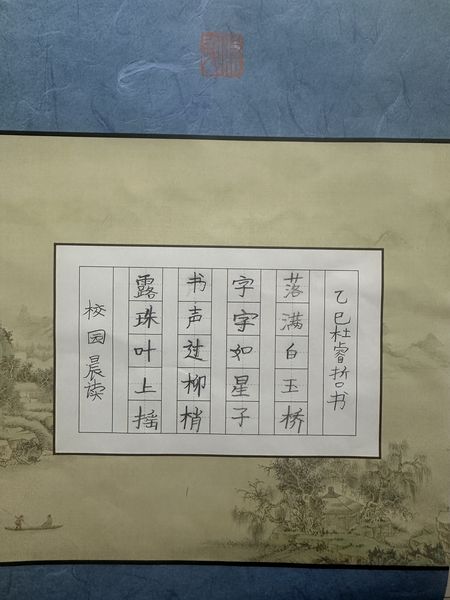 校园晨读
露珠叶上摇
书声过柳梢
字字如星子
落满白玉桥
乙巳杜睿哲书